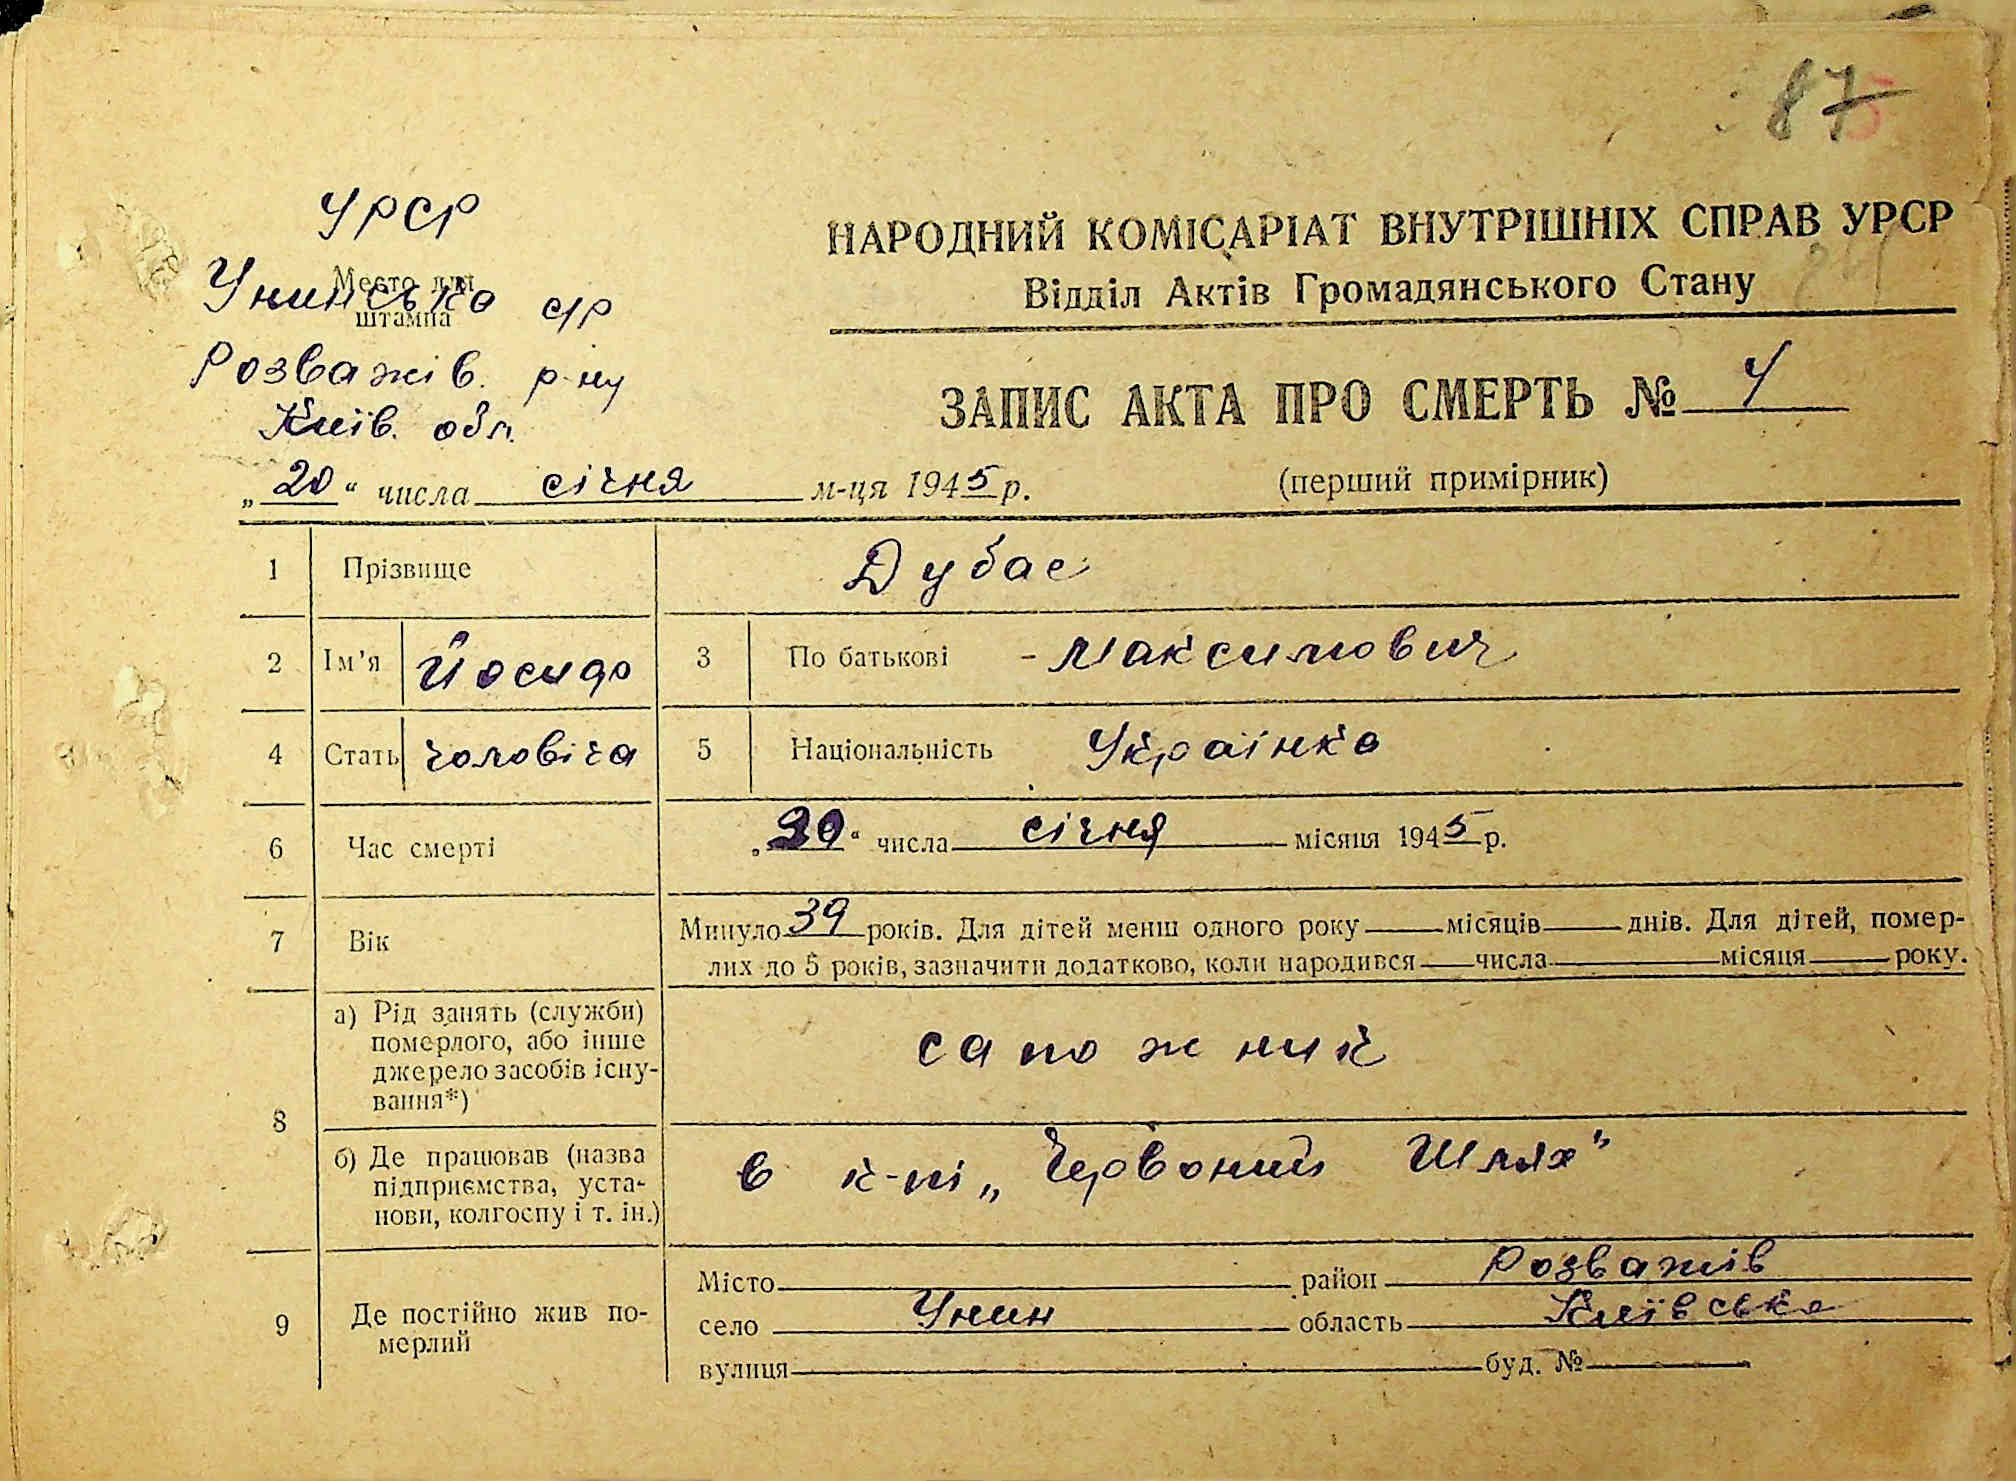 87
УРСР
Место для
штампа
Унинська с/р
Розважів. р-ну
Київ. обл.
НАРОДНИЙ КОМІСАРІАТ ВНУТРІШНІХ СПРАВ УРСР
Відділ Актів Громадянського Стану
ЗАПИС АКТА ПРО СМЕРТЬ № 4
„20“ числа січня м-ця 1945 р.
(перший примірник)
1 Прізвище Дубас
2 Ім'я Йосипр 3 По батькові - Максимович
4 Стать чоловіча 5 Національність Українка
6 Час смерті „20“ числа січня місяця 1945 р.
7 Вік Минуло 39 років. Для дітей менш одного року місяців днів. Для дітей, помер-
лих до 5 років, зазначити додатково, коли народився числа місяця року.
8
а) Рід занять (служби)
померлого, або інше
джерело засобів існу-
вання*)
сапожник
б) Де працював (назва
підприємства, уста-
нови, колгоспу і т. ін.)
в к-пі „Червоний Шлях"
9 Де постійно жив по-
мерлий
Місто район Розважів
село Унин область Київська
вулиця буд. №